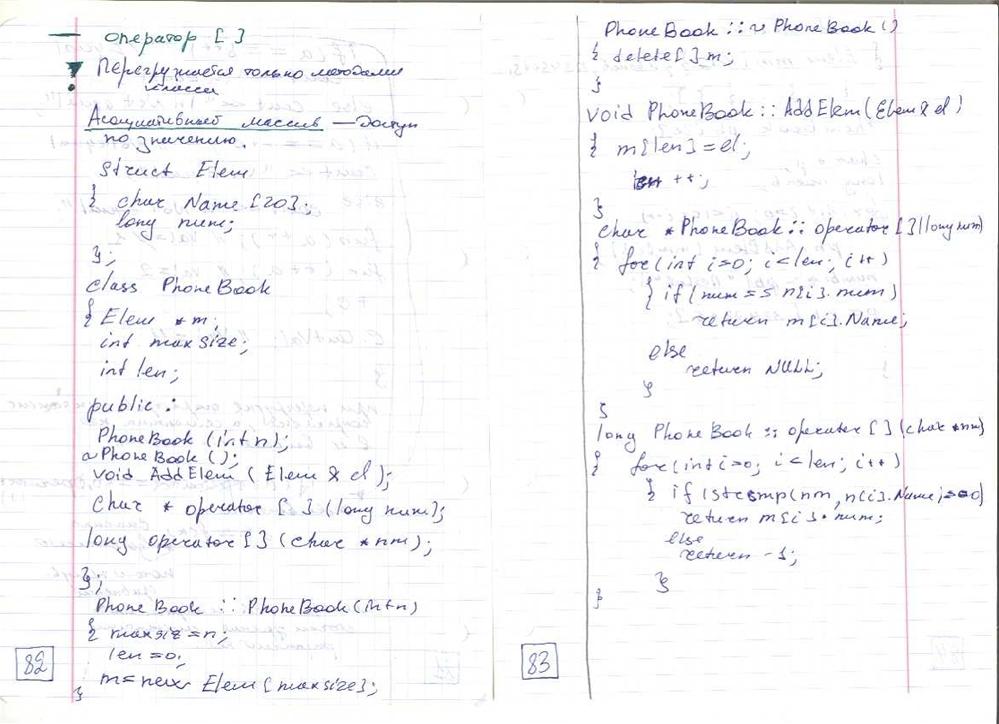 — оператор [ ]
! Перегружается только методами
класса
Асоциативный массив — доступ
по значению.
struct Elem
{ char Name [20];
long num;
};
class PhoneBook
{ Elem *m;
int maxsize;
int len;
public:
PhoneBook (int n);
~PhoneBook ();
void AddElem (Elem & el);
char * operator [ ] (long num);
long operator [ ] (char *nm);
};
PhoneBook :: PhoneBook (int n)
{ maxsiz = n;
len = 0;
m = new Elem [maxsize];
}
82
PhoneBook :: ~ PhoneBook ()
{ delete [ ] m;
}
void PhoneBook :: AddElem (Elem & el)
{ m[len] = el;
len ++;
}
char * PhoneBook :: operator [ ] (long num)
{ for (int i=0; i<len; i++)
{ if (num == m[i].num)
return m[i].Name;
else
return NULL;
}
}
long PhoneBook :: operator [ ] (char *nm)
{ for (int i=0; i<len; i++)
{ if (strcmp(nm, m[i].Name)==0)
return m[i].num;
else
return -1;
}
}
83